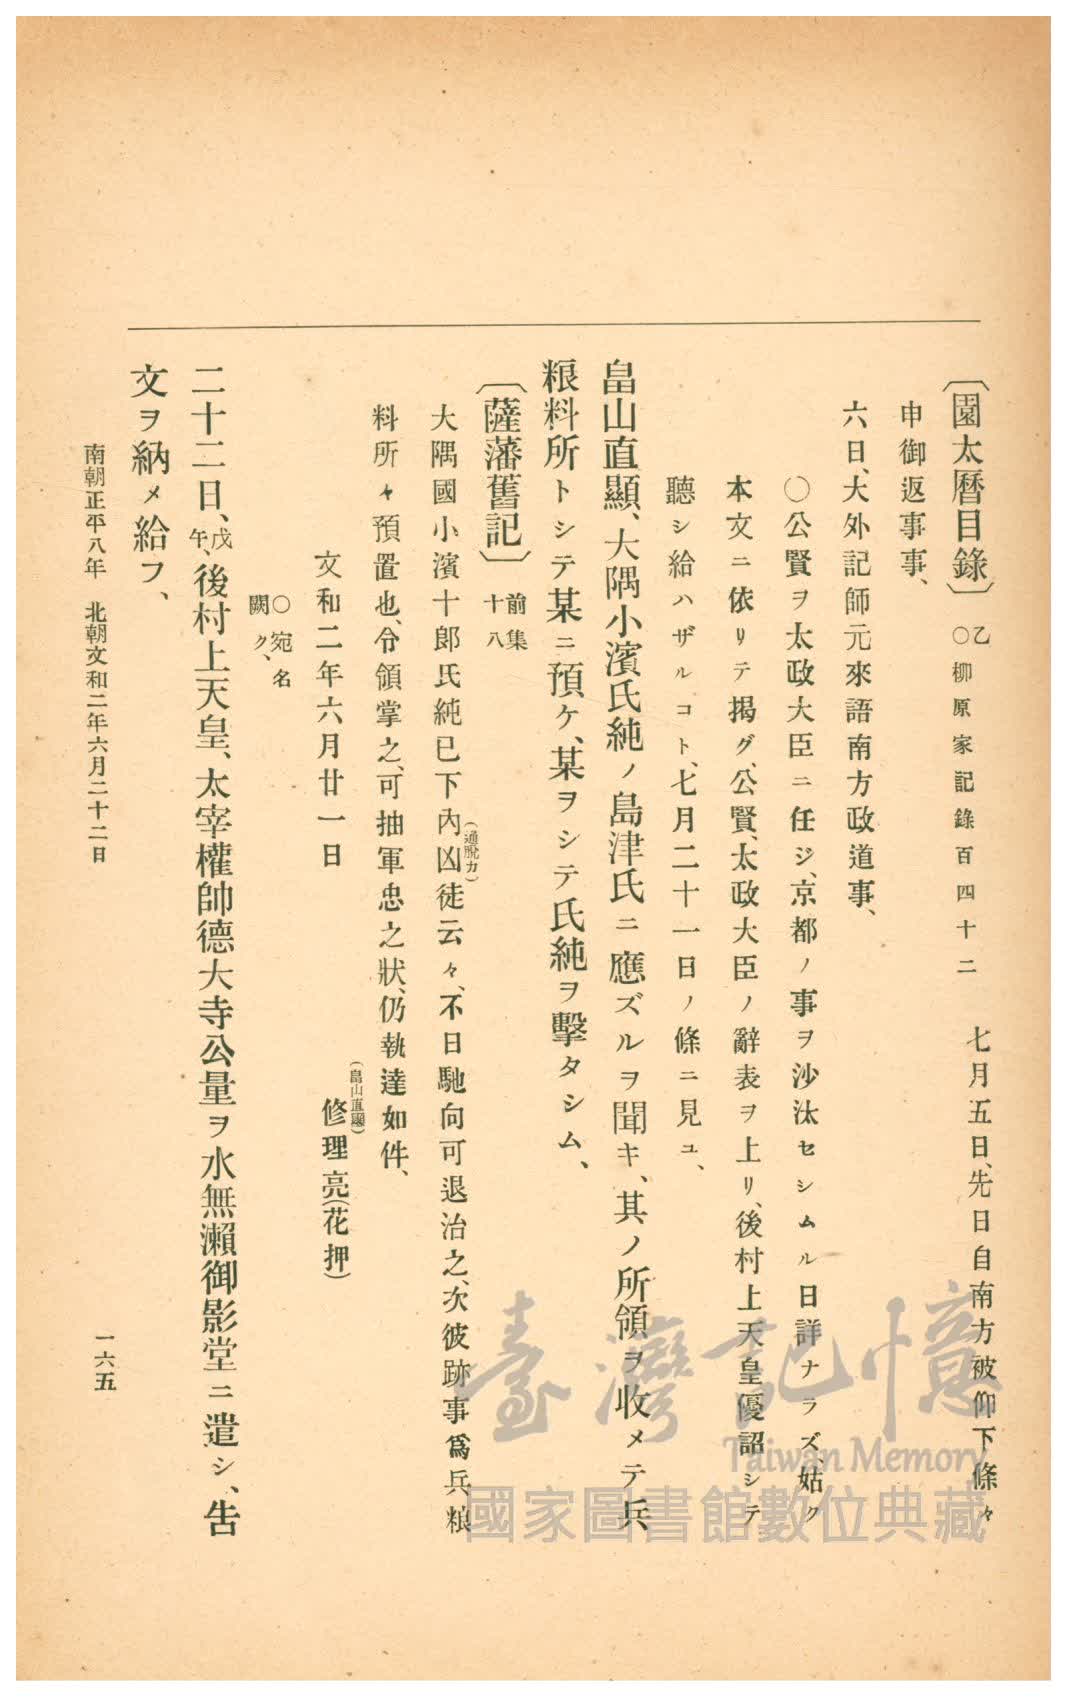 〔園太曆目錄〕乙○柳原家記錄百四十二　七月五日、先日自南方被仰下條々
申御返事事、
六日、大外記師元來語南方政道事、
○公賢ヲ太政大臣ニ任ジ、京都ノ事ヲ沙汰セシムル日詳ナラズ、姑ク
本文ニ依リテ揭グ、公賢、太政大臣ノ辭表ヲ上リ、後村上天皇優詔シテ
聽シ給ハザルコト、七月二十一日ノ條ニ見ユ、
畠山直顯、大隅小濱氏純ノ島津氏ニ應ズルヲ聞キ、其ノ所領ヲ收メテ兵
粮料所トシテ某ニ預ケ、某ヲシテ氏純ヲ擊タシム、
〔薩藩舊記〕前集十八
大隅國小濱十郞氏純已下內凶(通脫カ)徒云々、不日馳向可退治之、次彼跡事爲兵粮
料所々預置也、令領掌之、可抽軍忠之狀、仍執達如件、
文和二年六月廿一日　修理亮(畠山直顯)(花押)
○宛名闕ク、
二十二日、戊午、後村上天皇、太宰權帥德大寺公量ヲ水無瀨御影堂ニ遣シ、告
文ヲ納メ給フ、
南朝正平八年　北朝文和二年六月二十二日
一六五
臺灣記憶
Taiwan Memory
國家圖書館數位典藏